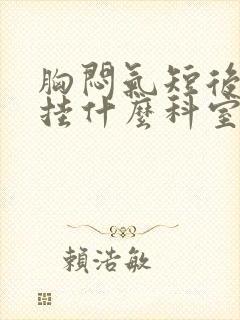 胸悶氣短後
挂什麼科室
賴浩敏